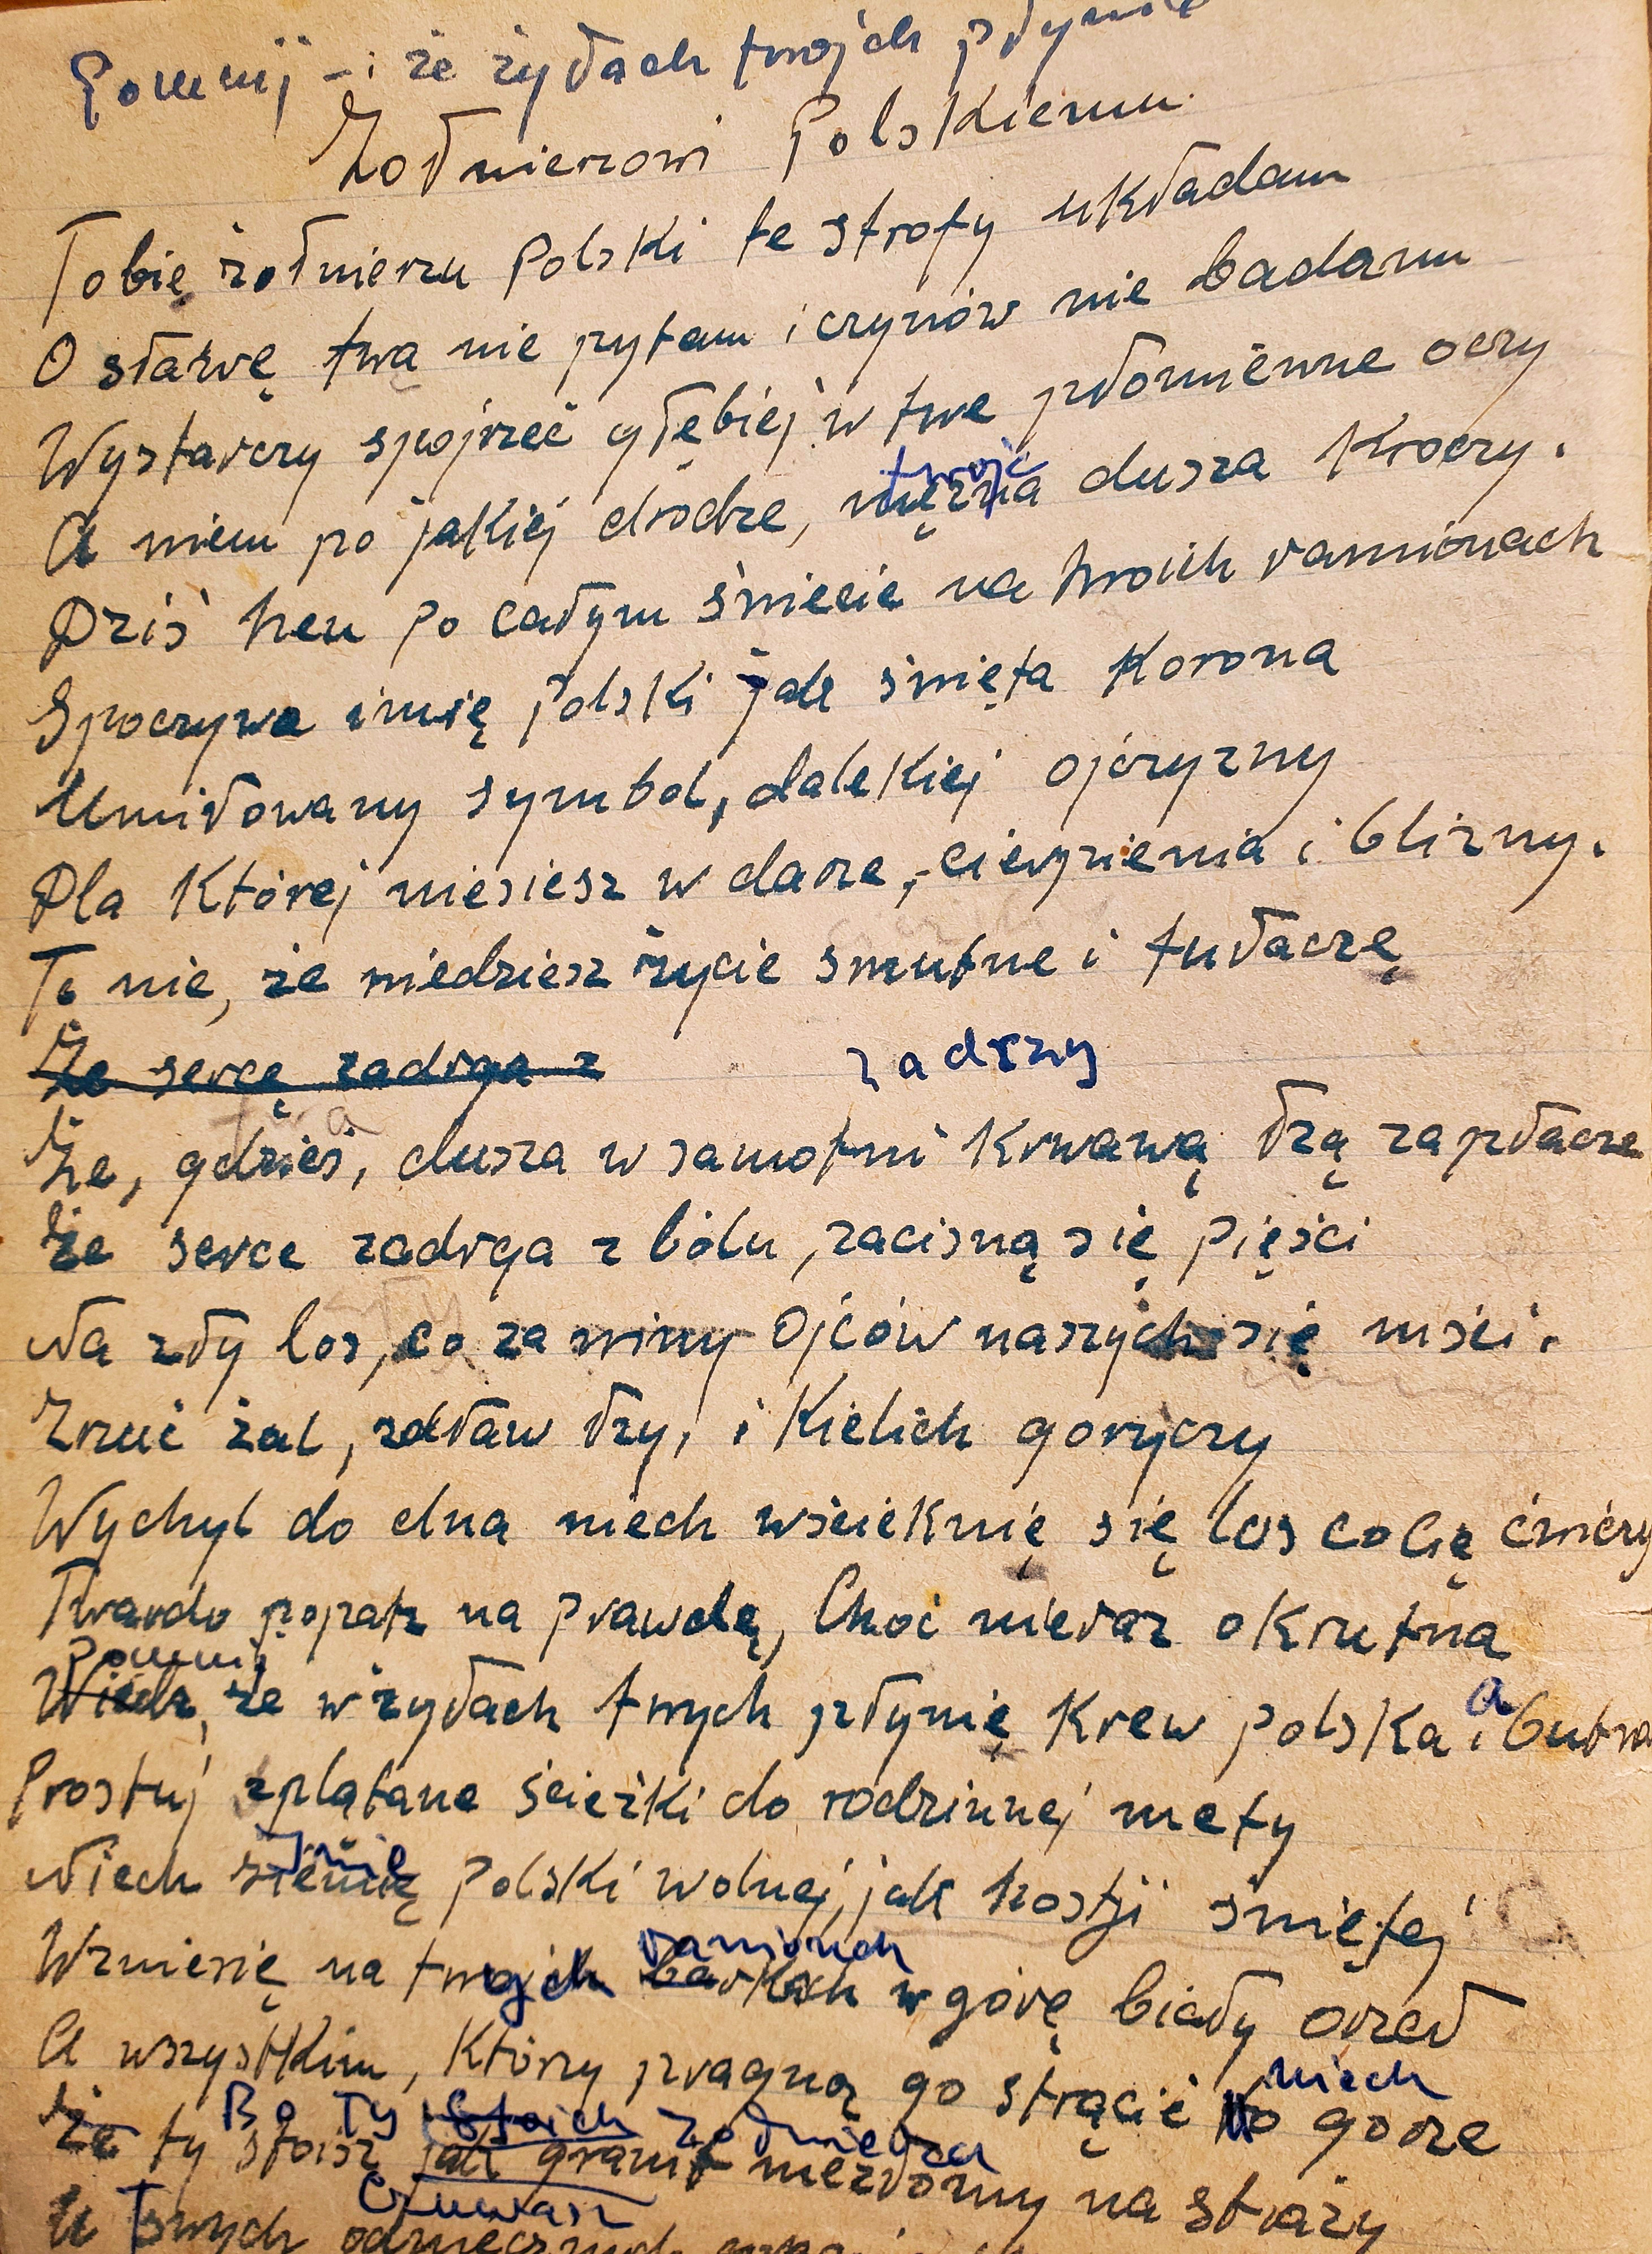 Pomnij - i że żyłach twojch płynie
Żołnierzowi Polskiemu
Tobię żołnierzu Polski te strofy układam
O sławę twą nie pytam i czynów nie badam
Wystarczy spojrzeć głębiej w twe płomienne oczy
twoja
A wiem po jakiej drodze, mężna dusza kroczy.
Dziś hen po całym świecie na twoich ramionach
Spoczywa imię Polski jak święta korona
Umiłowany symbol, dalekiej ojczyzny
Dla której niesiesz w darze, - cierpienia i blizny.
To nie, że wiedziesz życie smutne i tułaczę
Że sercę zadrga z
zadrży
Że, gdzieś, dusza w samotni krwawą łzą zapłacze
Że serce zadrga z bólu, zacisną się pięści
Na zły los, co za winy Ojców naszych się mści.
Zrzuć żal, zdław łzy, i kielich goryczy
Wychyl do dna niech wścieknię się los co Cię ćwiczy
Twardo popatrz na prawdę, Choć nieraz okrutna
Pomnij
Wiedz, że w żyłach twych płynię krew polska i butna
a
Prostuj splątane ścieżki do rodzinnej mety
Imię
Niech ziemię Polski wolnej, jak hostji świętej
ramionach
Wzniesię na twojch barkach w górę biały orzeł
A wszystkim, którzy pragną go strącić to gorze
niech
Bo Ty stoich żołnierzu
Że ty stoisz jak granit niezłomny na straży
Czuwasz
U Twych